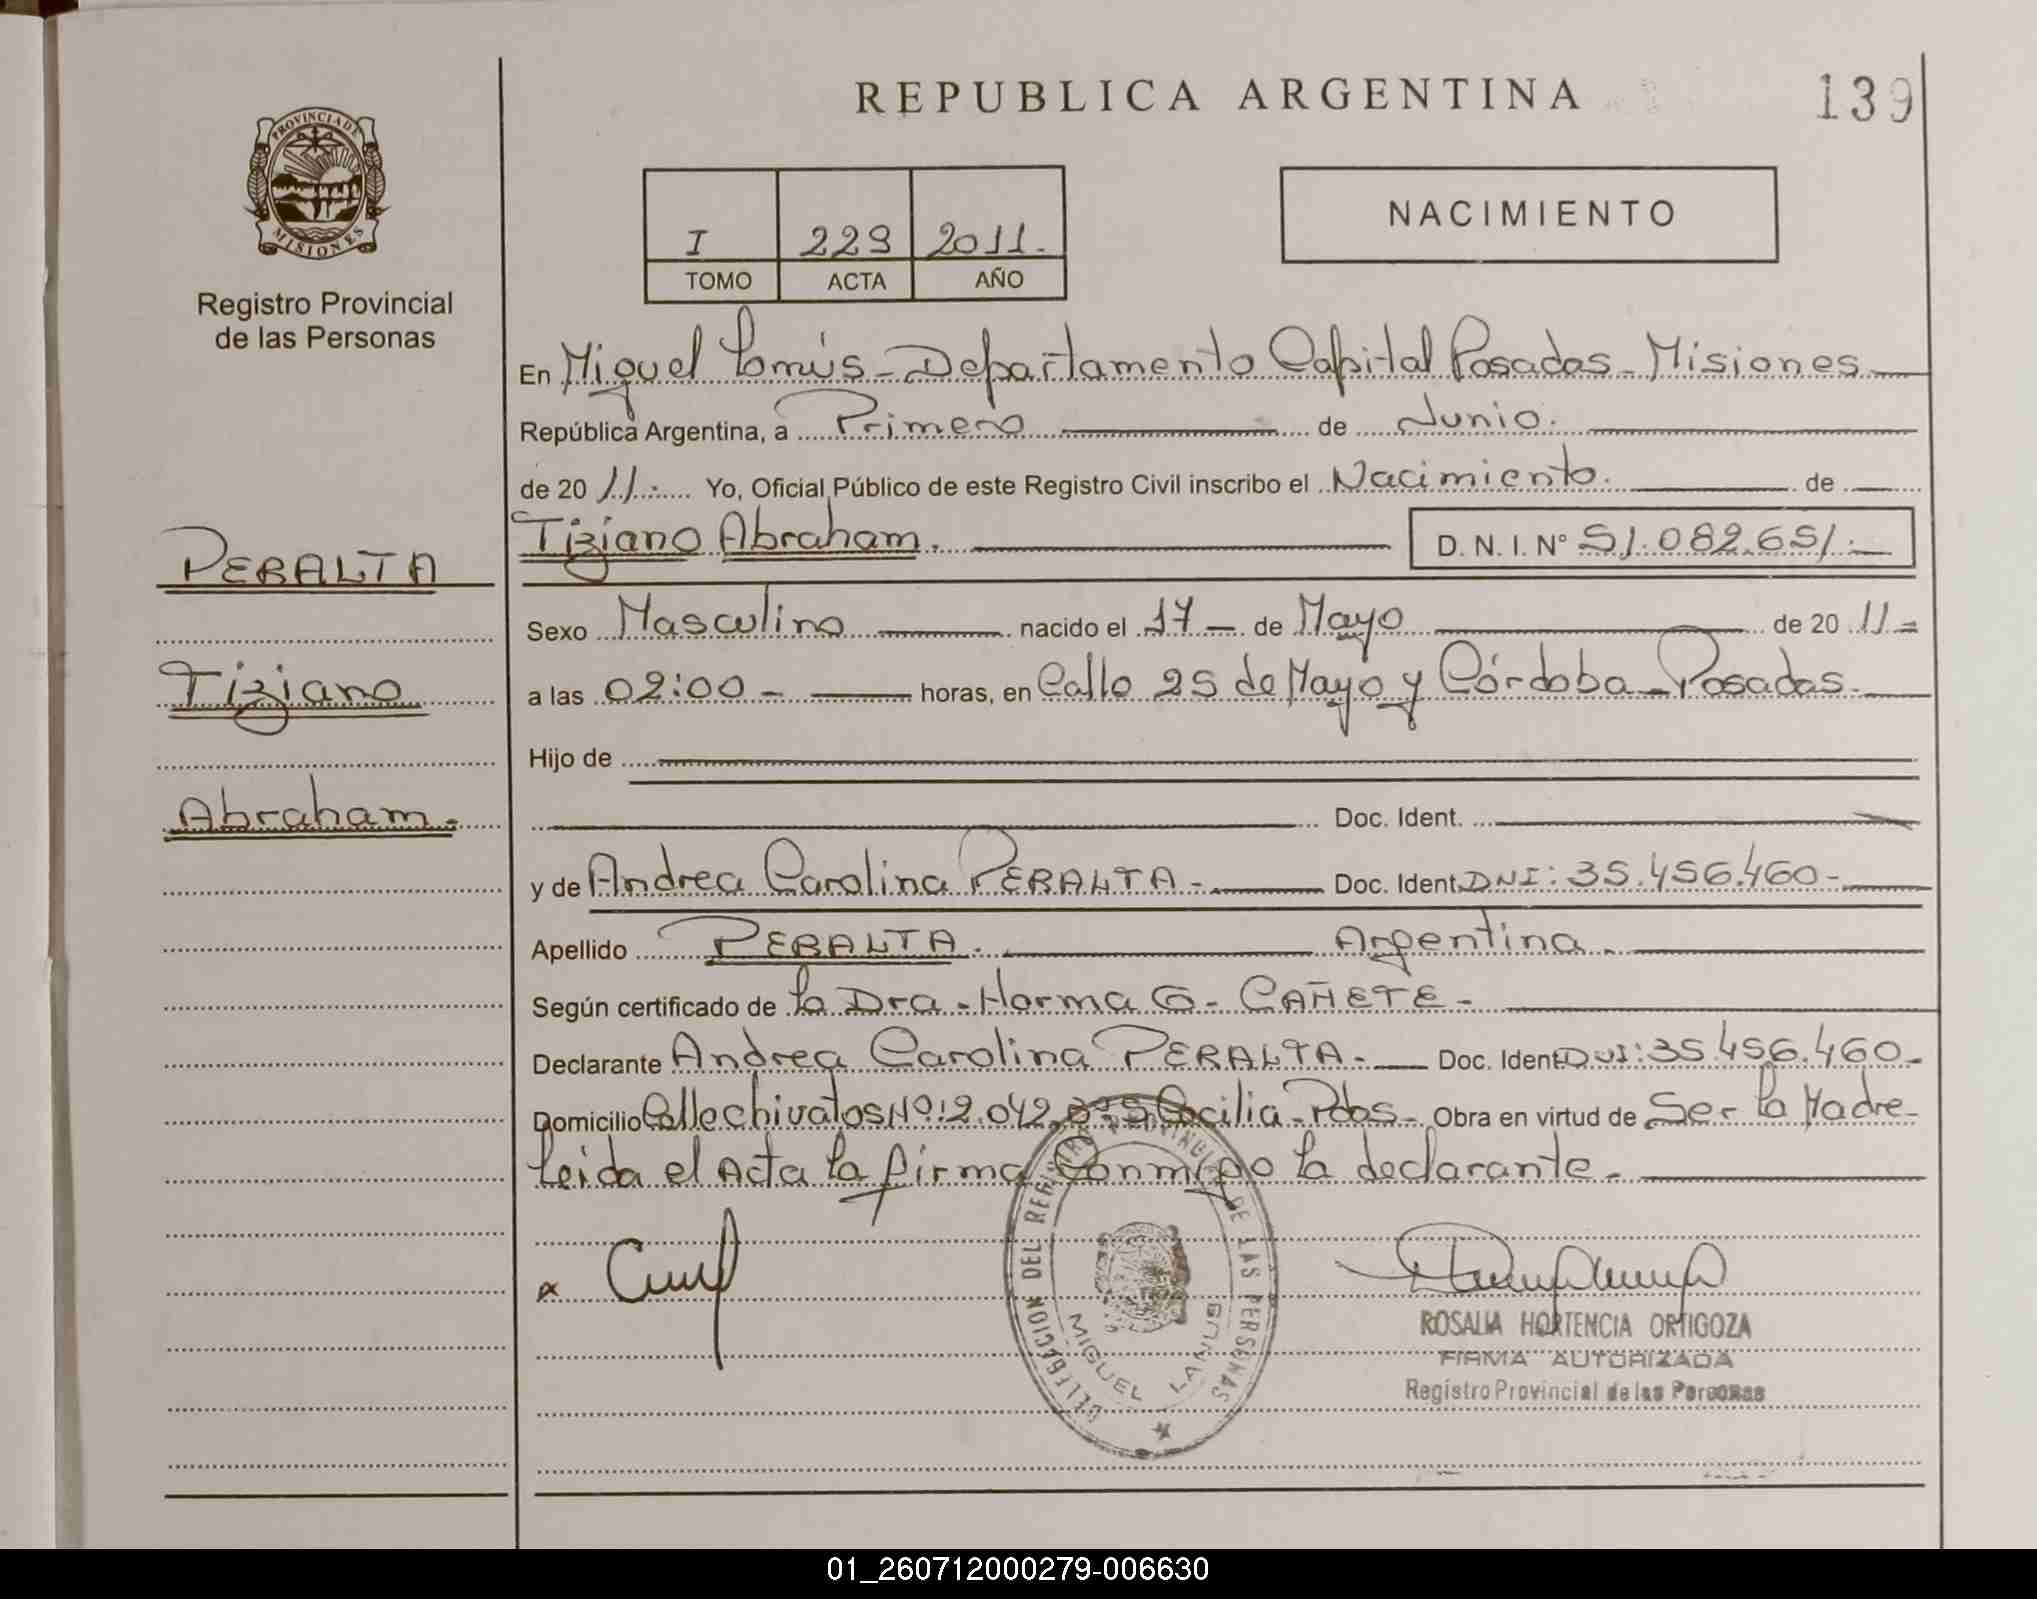 REPUBLICA ARGENTINA
139
PROVINCIA DE MISIONES
Registro Provincial
de las Personas
I 229 2011.
TOMO ACTA AÑO
NACIMIENTO
En Miguel Lanús - Departamento Capital Posadas - Misiones
República Argentina, a Primero de Junio.
de 20 11. Yo, Oficial Público de este Registro Civil inscribo el Nacimiento. de
Tiziano Abraham. D. N. I. Nº 51.082.651.
PERALTA
Tiziano
Abraham.
Sexo Masculino nacido el 17 de Mayo de 20 11
a las 02:00 horas, en Calle 25 de Mayo y Córdoba - Posadas.
Hijo de
Doc. Ident.
y de Andrea Carolina PERALTA - Doc. Ident. DNI: 35.456.460 -
Apellido PERALTA. Argentina.
Según certificado de la Dra - Norma G - CAÑETE -
Declarante Andrea Carolina PERALTA - Doc. Ident. DNI: 35.456.460 -
Domicilio Calle chivatos Nº: 2.042 Cecilia - Pdas - Obra en virtud de Ser la Madre -
Leida el Acta la firma Conmigo la declarante.
x
DELEGACION DEL REGISTRO PROVINCIAL DE LAS PERSONAS
MIGUEL LANUS
ROSALIA HORTENCIA ORTIGOZA
FIRMA AUTORIZADA
Registro Provincial de las Personas
01_260712000279-006630